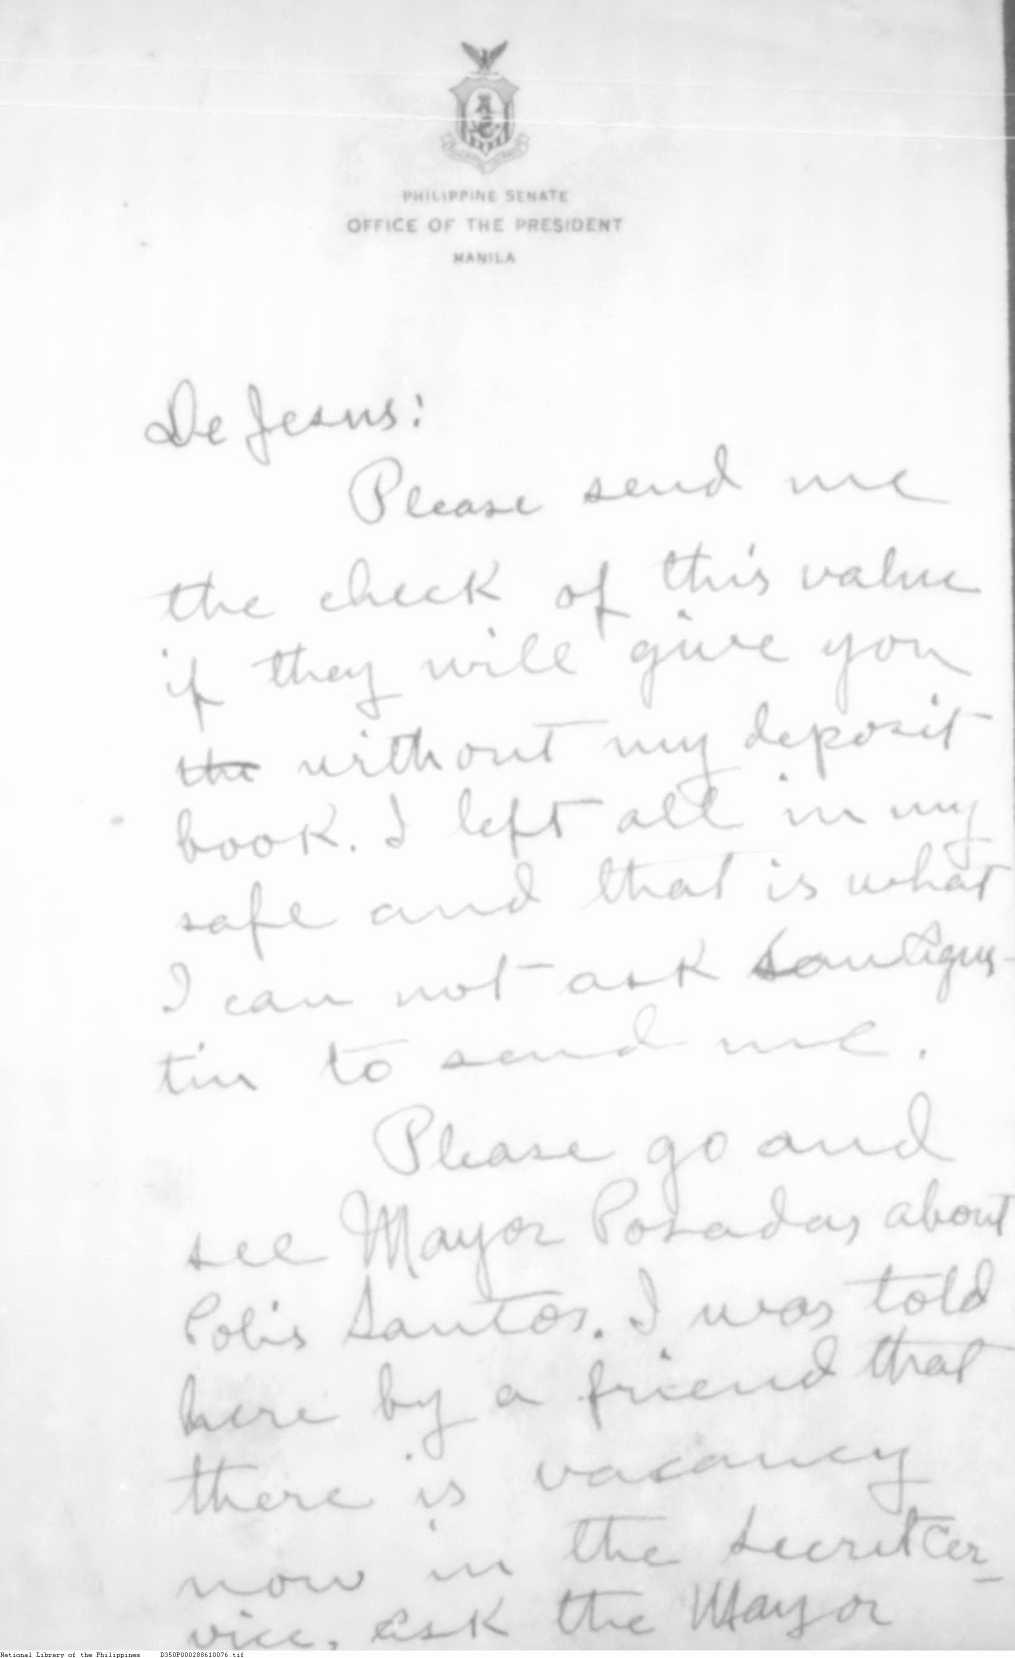 PHILIPPINE SENATE
OFFICE OF THE PRESIDENT
MANILA
De Jesus:
Please send me
the check of this value
if they will give you
the without my deposit
book. I left all in my
safe and that is what
I can not ask San Agus-
tin to send me.
Please go and
see Mayor Posadas about
Polis Santos. I was told
here by a friend that
there is vacancy
now in the secret ser-
vice, ask the Mayor
National Library of the Philippines D350P000288610076.tif